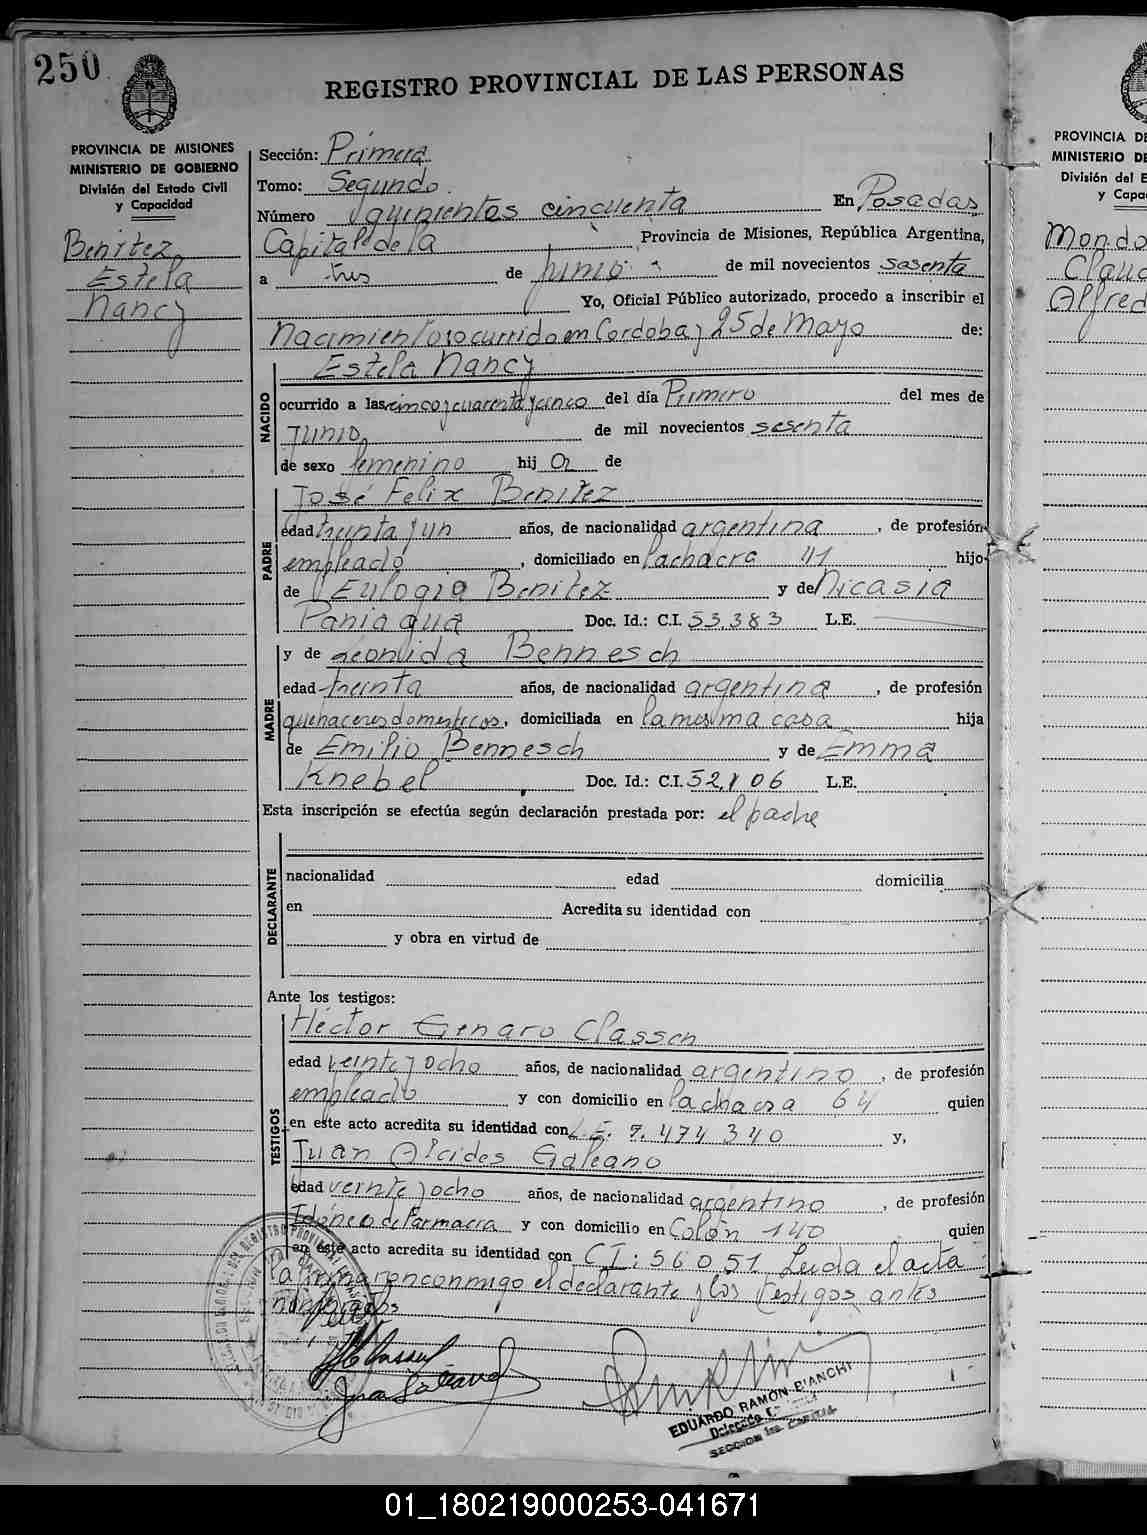 250
REGISTRO PROVINCIAL DE LAS PERSONAS
PROVINCIA DE MISIONES
MINISTERIO DE GOBIERNO
División del Estado Civil
y Capacidad
Benitez
Estela
Nancy
Sección: Primera
Tomo: Segundo
Número quinientos cincuenta En Posadas
Capital de la Provincia de Misiones, República Argentina,
a tres de junio de mil novecientos sesenta
Yo, Oficial Público autorizado, procedo a inscribir el
Nacimiento ocurrido en Cordoba y 25 de Mayo de:
NACIDO
Estela Nancy
ocurrido a las cinco y cuarenta y cinco del día Primero del mes de
Junio de mil novecientos sesenta
de sexo femenino hij a de
PADRE
José Felix Benitez
edad treinta y un años, de nacionalidad argentina, de profesión
empleado, domiciliado en la chacra 41 hijo
de Eulogio Benitez y de Nicasia
Paniagua Doc. Id.: C.I. 53.383 L.E.
MADRE
y de Leonida Bennesch
edad treinta años, de nacionalidad argentina, de profesión
quehaceres domesticos, domiciliada en la misma casa hija
de Emilio Bennesch y de Emma
Knebel Doc. Id.: C.I. 52.106 L.E.
Esta inscripción se efectúa según declaración prestada por: el padre
DECLARANTE
nacionalidad edad domicilia
en Acredita su identidad con
y obra en virtud de
Ante los testigos:
TESTIGOS
Héctor Genaro Classen
edad veinte y ocho años, de nacionalidad argentino, de profesión
empleado y con domicilio en la chacra 64 quien
en este acto acredita su identidad con L.E. 7.474340 y,
Juan Alcides Galeano
edad veinte y ocho años, de nacionalidad argentino, de profesión
Idóneo de Farmacia y con domicilio en Colón 140 quien
en este acto acredita su identidad con CI: 56051 Leida el acta
la firmaron conmigo el declarante y los testigos antes
nombrados
EDUARDO RAMON BIANCHI
PROVINCIA DE
MINISTERIO DE
División del E
y Capa
Mondo
Claud
Alfred
01_180219000253-041671